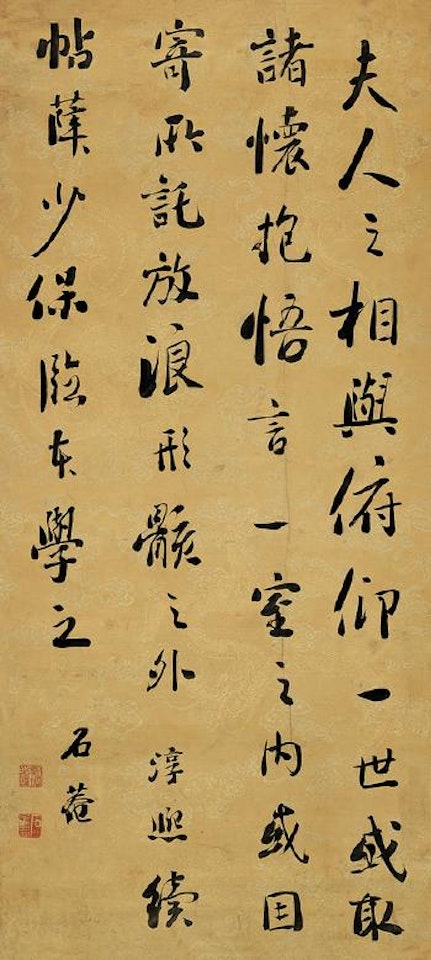 夫人之相與俯仰一世或取
諸懷抱悟言一室之内或因
寄所託放浪形骸之外 淳熙續
帖薛少保臨本學之
石菴